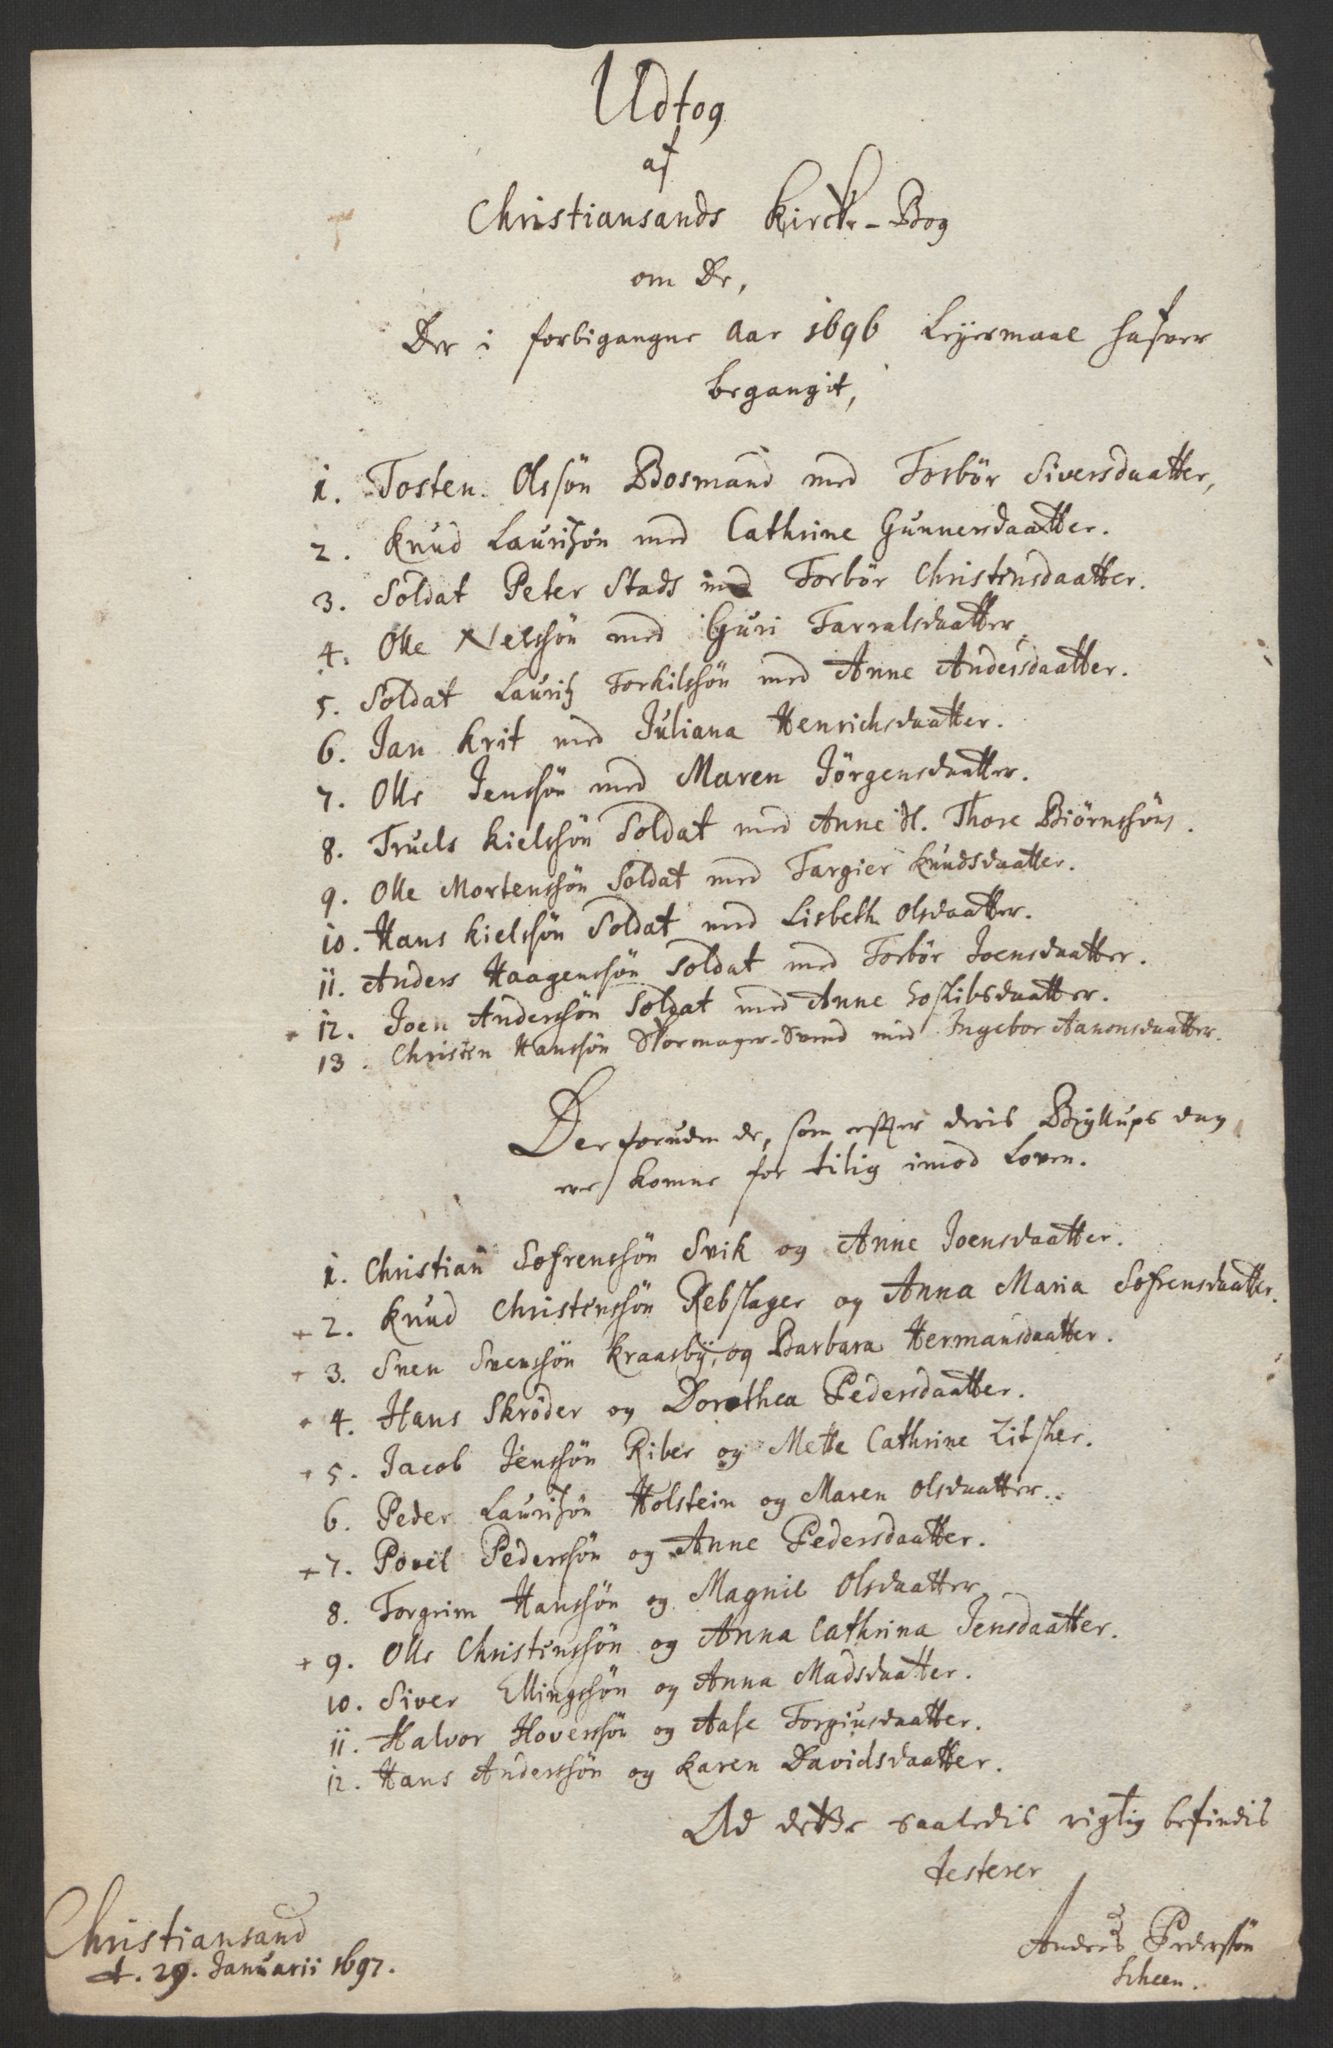 Udtog
af
Christiansands Kircke-Bog
om De,
Der i forbigangne Aar 1696 Leyermaal hafver
begangit,
1. Tosten Olssön Bosmand med Torbör Siversdaatter,
2. Knud Lauritzön med Cathrine Gunnersdaatter.
3. Soldat Peter Stads med Torbör Christensdaatter.
4. Olle Nelssön med Guri Tarralsdaatter,
5. Soldat Lauritz Torkilssön med Anne Andersdaatter.
6. Jan Krit med Juliana Henrichsdaatter.
7. Olle Jenssön med Maren Jörgensdaatter.
8. Truels Kielssön Soldat med Anne Sl. Thore Biörnssöns.
9. Olle Mortenssön Soldat med Targier Knudsdaatter.
10. Hans Kielssön Soldat med Lisbeth Olsdaatter.
11. Anders Haagenssön Soldat med Torbör Joensdaatter.
12. Joen Anderssön Soldat med Anne Goslibsdaatter.
13. Christen Hanssön Skoemager-Svend med Ingebor Aanonsdaatter.
Der foruden de, som efter deris Bryllups dag
ere komne for tilig imod Loven.
1. Christian Sofrenssön Svik og Anne Joensdaatter.
+ 2. Knud Christenssön Rebslager og Anna Maria Sofrensdaatter.
+ 3. Sven Svenssön Kraasbÿ, og Barbara Hermansdaatter.
+ 4. Hans Skröder og Dorothea Pedersdaatter.
+ 5. Jacob Jenssön Riber og Mette Cathrine Litsher.
6. Peder Lauritzön Holstein og Maren Olsdaatter.
+ 7. Povel Pederssön og Anne Pedersdaatter.
8. Torgrim Hanssön og Magnil Olsdaatter
+ 9. Olle Christenssön og Anna Cathrina Jensdaatter.
10. Siver Ellingssön og Anna Madsdaatter.
11. Halvor Hoverssön og Aase Torgiusdaatter.
12. Hans Anderssön og Karen Davidsdaatter.
Ad dette saaledis rigtig befindis
testerer
Anders Pederssön
Scheen.
Christiansand
d. 29. Januarii 1697.